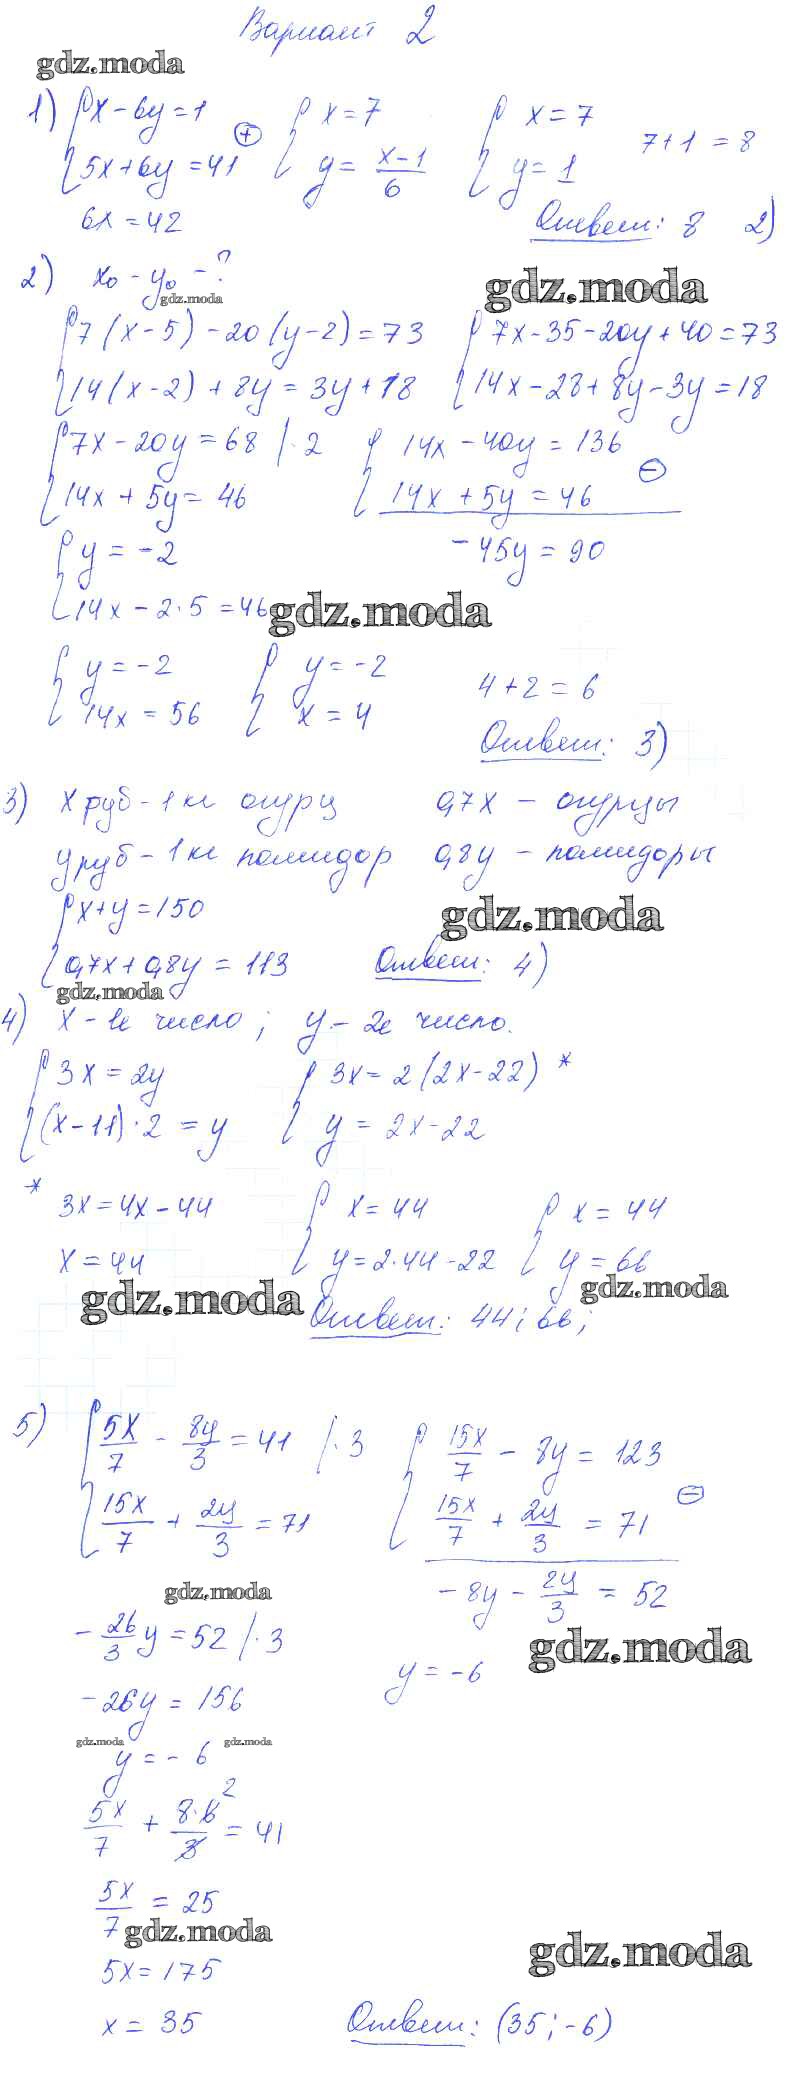 Вариант 2
gdz.moda
1) { x - 6y = 1
{ 5x + 6y = 41 (+)
6x = 42
{ x = 7
{ y = (x-1)/6
{ x = 7
{ y = 1
7 + 1 = 8
Ответ: 8 2)
2) x₀ - y₀ - ?
gdz.moda
gdz.moda
{ 7(x-5) - 20(y-2) = 73
{ 14(x-2) + 8y = 3y + 18
{ 7x - 35 - 20y + 40 = 73
{ 14x - 28 + 8y - 3y = 18
{ 7x - 20y = 68 | · 2
{ 14x + 5y = 46
{ 14x - 40y = 136
{ 14x + 5y = 46 (-)
-45y = 90
{ y = -2
{ 14x - 2·5 = 46
gdz.moda
{ y = -2
{ 14x = 56
{ y = -2
{ x = 4
4 + 2 = 6
Ответ: 3)
3) x руб - 1 кг огурц 0,7x - огурцы
y руб - 1 кг помидор 0,8y - помидоры
{ x + y = 150
{ 0,7x + 0,8y = 113
gdz.moda
Ответ: 4)
gdz.moda
4) x - 1е число; y - 2е число.
{ 3x = 2y
{ (x-11)·2 = y
{ 3x = 2(2x-22) *
{ y = 2x-22
* 3x = 4x - 44
x = 44
{ x = 44
{ y = 2·44-22
{ x = 44
{ y = 66
gdz.moda
gdz.moda
Ответ: 44; 66;
5) { 5x/7 - 8y/3 = 41 | · 3
{ 15x/7 + 2y/3 = 71
{ 15x/7 - 8y = 123
{ 15x/7 + 2y/3 = 71 (-)
-8y - 2y/3 = 52
gdz.moda
-26/3 y = 52 | · 3
gdz.moda
y = -6
-26y = 156
gdz.moda gdz.moda
y = -6
5x/7 + 8·6/3 = 41
2
5x/7 = 25
gdz.moda
gdz.moda
5x = 175
x = 35
Ответ: (35; -6)